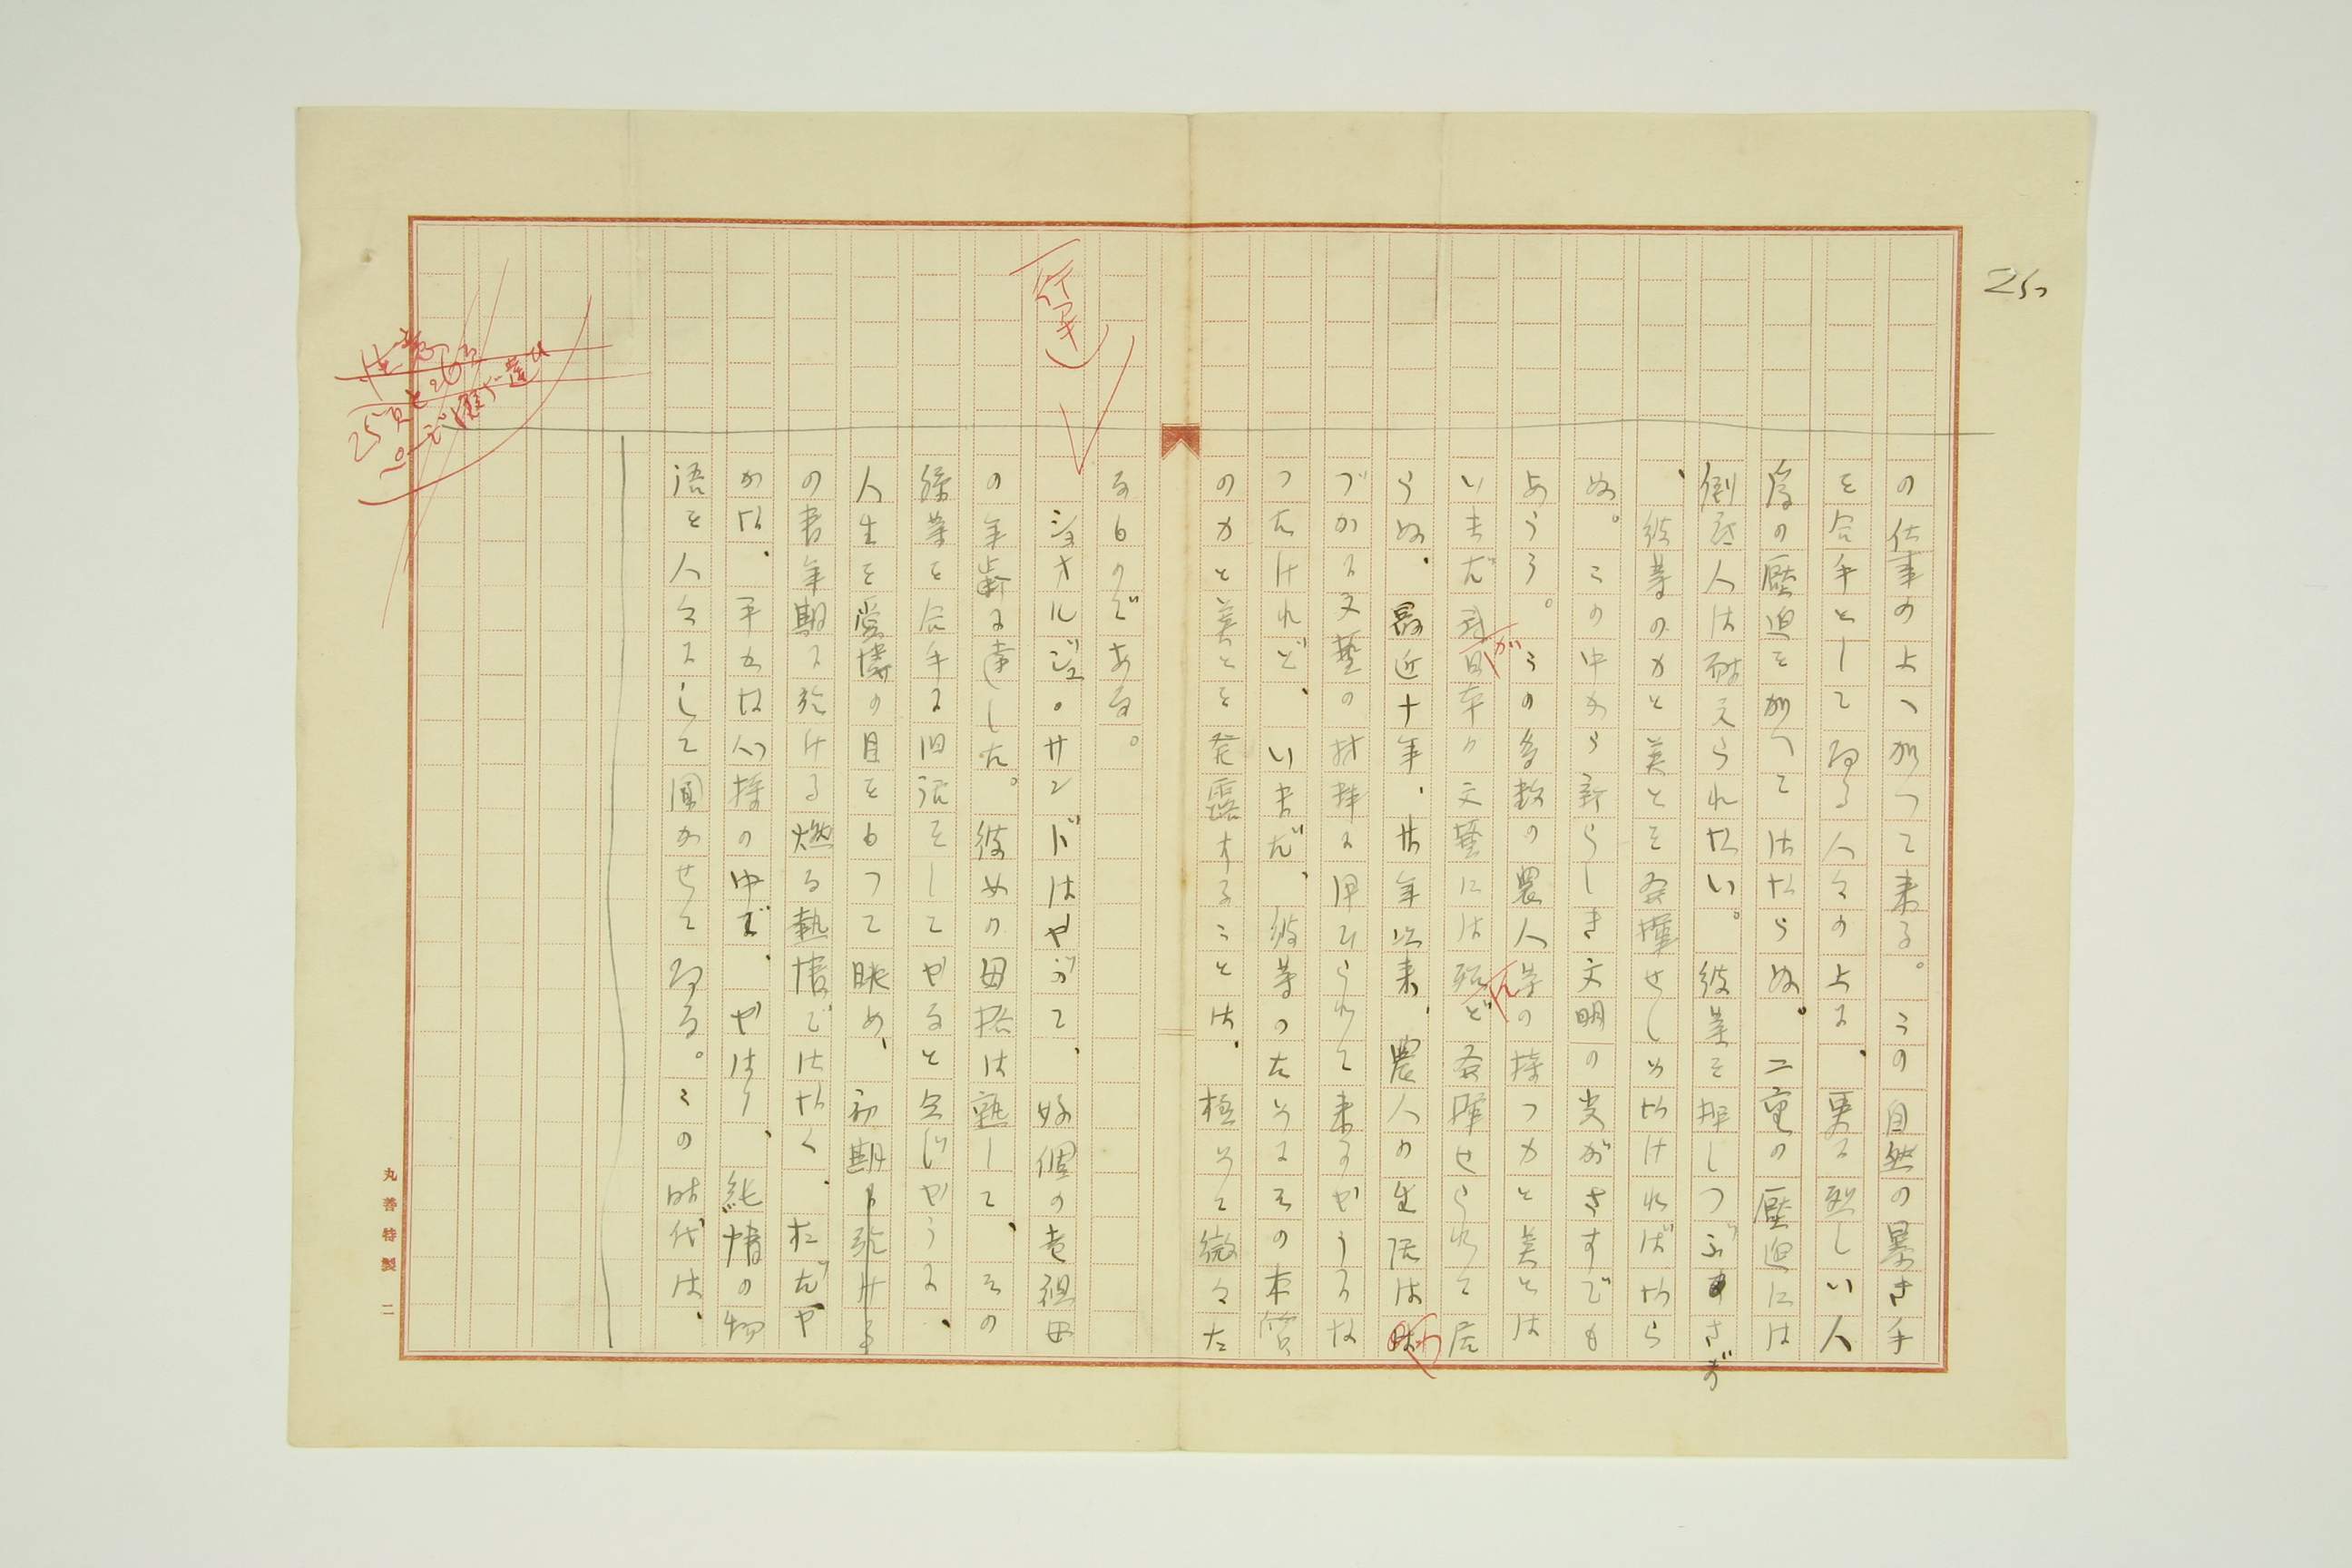 25
の仕事の上へ加つて来る。この自然の暴き手
を合手としてゐる人々の上に、更に烈しい人
為の壓迫を加へてはならぬ。二重の壓迫には
倒底人は耐えられない。彼等を押しつぶさず
、彼等の力と美とを発揮せしめなければなら
ぬ。この中から新らしき文明の芽がきすでも
あらう。この多数の農人等の持つ力と美とは
いまだ我が日本の文藝には殆んど発揮せられて居
らぬ、最近十年、廿年以来、農人の生活は
づかに文藝の材料に用ひられて来るやうにな
つたけれど、いまだ、彼等のためにその本質
の力と美とを発露することは、極めて微々た
るものである。
(一行アキ)
ジョオルジュ・サンドはやがて、好個の老祖母
の年齢に達した。彼女の母性は熟して、その
孫等を合手に旧話をしてやると同じやうに、
人生を愛憐の目をもつて眺め、初期
の青年期に於ける燃る熱情ではなく、おだや
かな、平和な心持の中で、やはり、純情の物
語を人々にして聞かせてゐる。この時代は、
注意
25頁と26頁
丸善特製 二